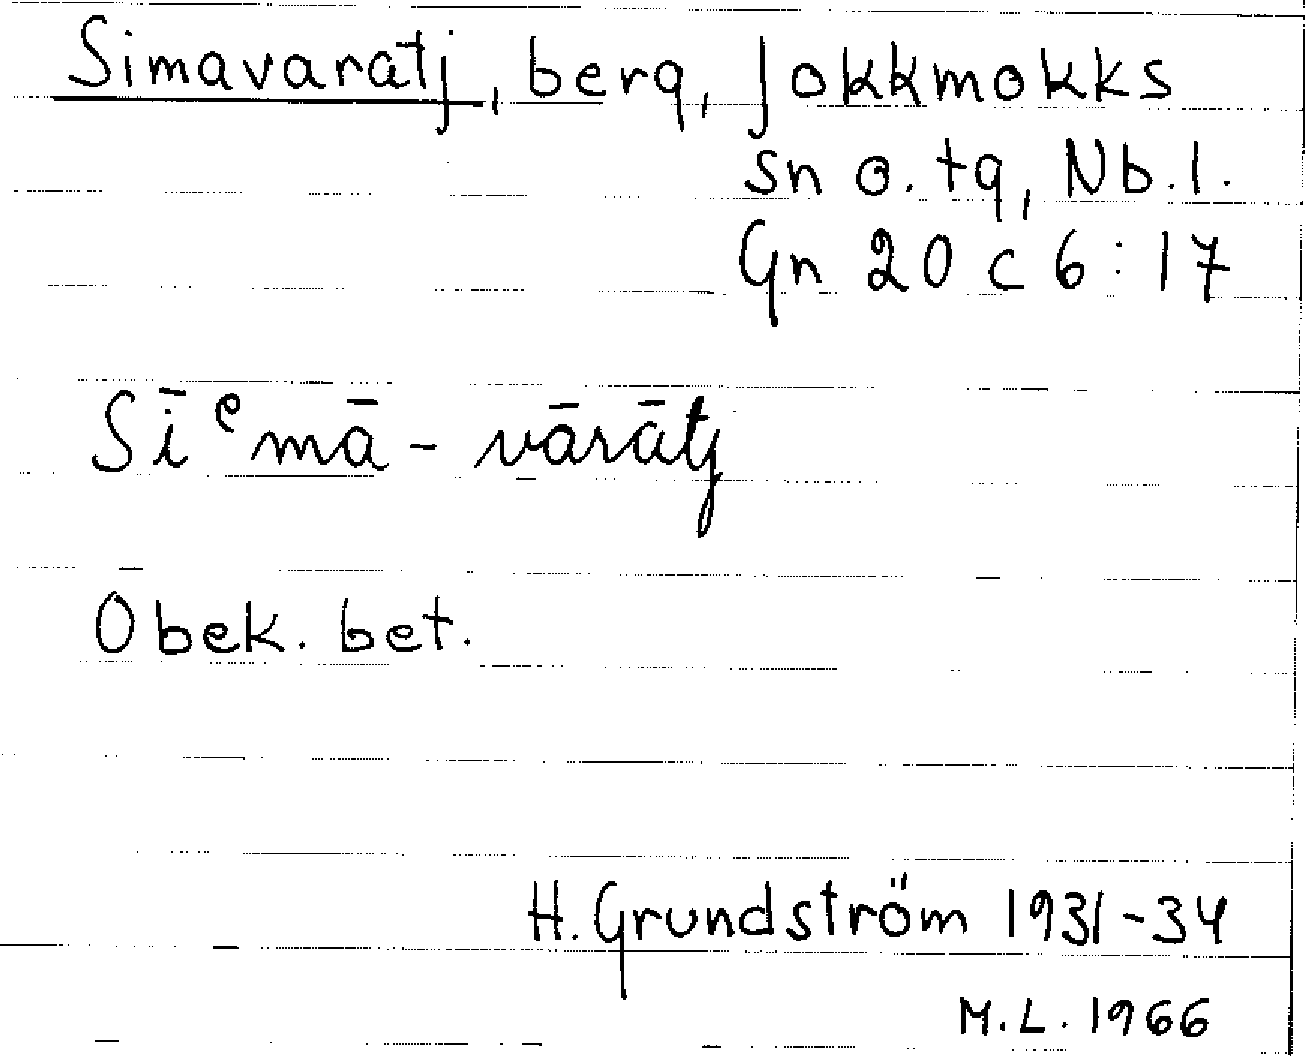 Simavaratj, berg, Jokkmokks
sn o. tg, Nb.l.
Gn 20 c 6:17
Sīᵉmā-vārātj
Obek. bet.
H. Grundström 1931-34
M.L. 1966